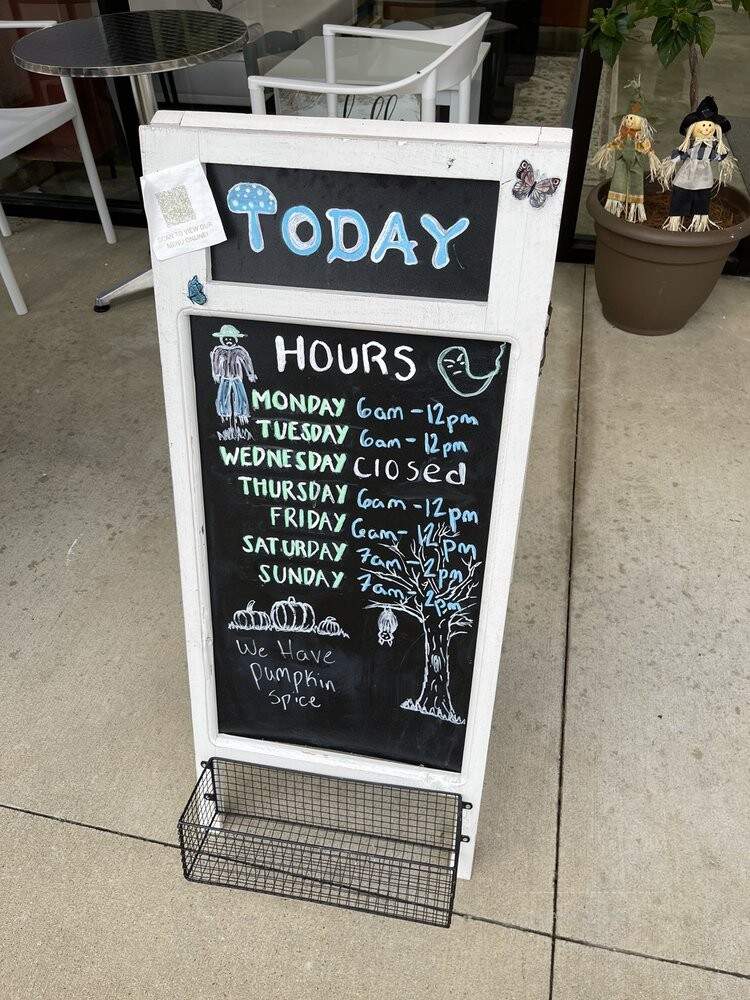 SCAN TO VIEW OUR
MENU ONLINE!
TODAY
HOURS
MONDAY 6am - 12pm
TUESDAY 6am - 12pm
WEDNESDAY closed
THURSDAY 6am - 12pm
FRIDAY 6am - 12pm
SATURDAY 7am - 2pm
SUNDAY 7am - 2pm
We Have
Pumpkin
Spice